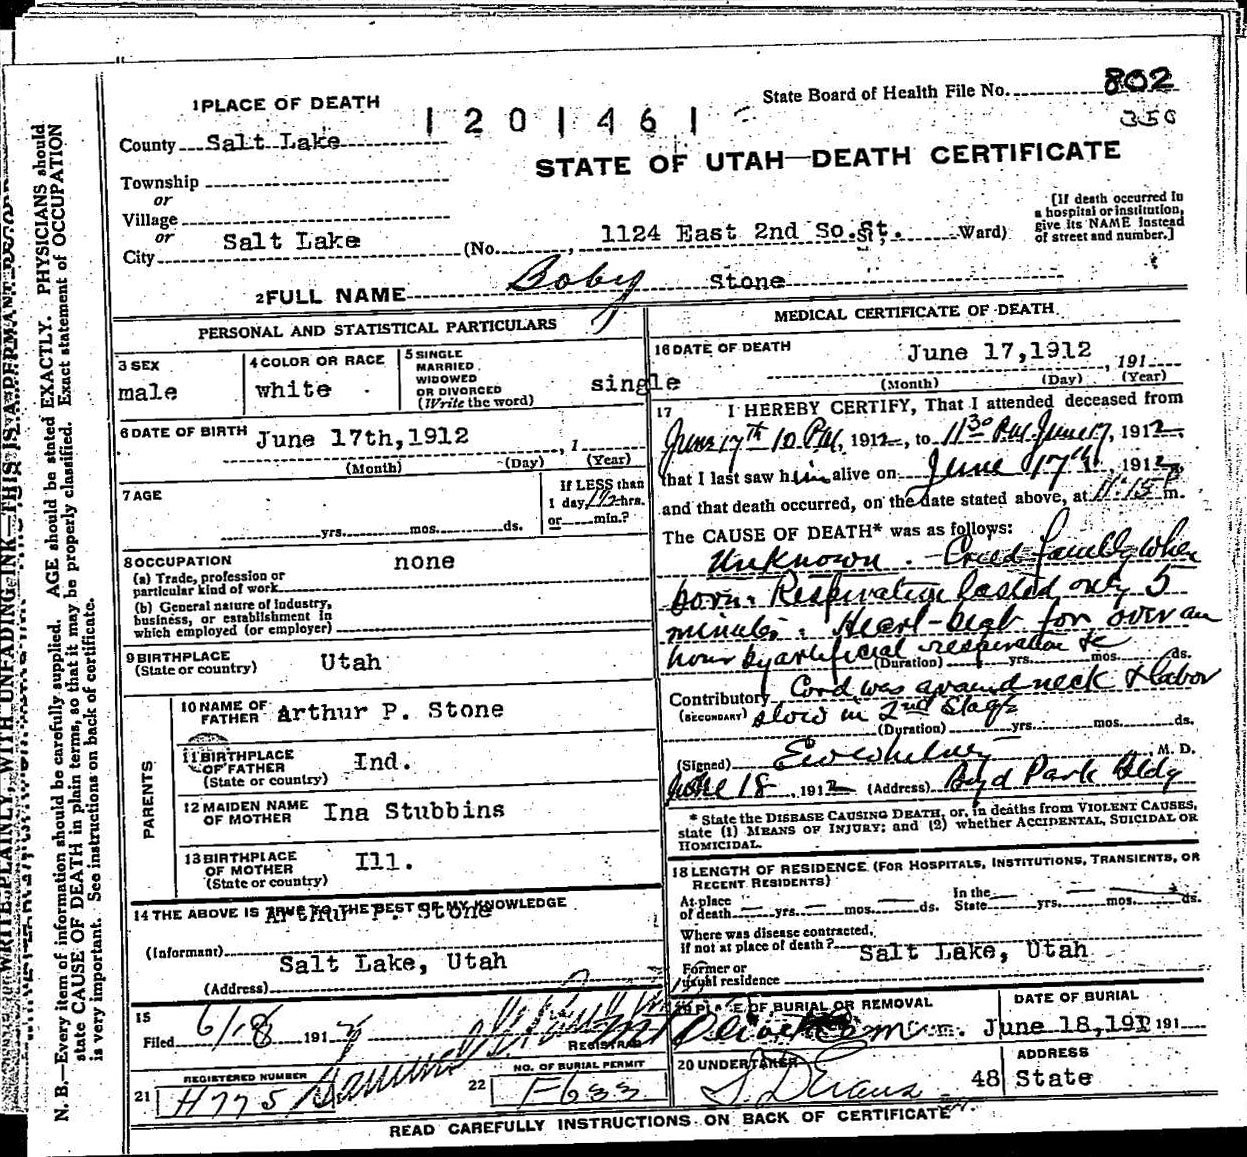 802
State Board of Health File No.
350
1 PLACE OF DEATH
1201461
County Salt Lake
STATE OF UTAH—DEATH CERTIFICATE
Township
or
Village
or
City Salt Lake (No. 1124 East 2nd So. St. St., Ward)
[If death occurred in a hospital or institution, give its NAME instead of street and number.]
2 FULL NAME Boby Stone
PERSONAL AND STATISTICAL PARTICULARS
3 SEX
male
4 COLOR OR RACE
white
5 SINGLE
MARRIED
WIDOWED
OR DIVORCED
(Write the word)
single
6 DATE OF BIRTH June 17th, 1912, 1
(Month) (Day) (Year)
7 AGE
yrs. mos. ds.
If LESS than
1 day, 1½ hrs.
or min.?
8 OCCUPATION none
(a) Trade, profession or
particular kind of work
(b) General nature of Industry,
business, or establishment in
which employed (or employer)
9 BIRTHPLACE Utah
(State or country)
PARENTS
10 NAME OF
FATHER Arthur P. Stone
11 BIRTHPLACE
OF FATHER Ind.
(State or country)
12 MAIDEN NAME
OF MOTHER Ina Stubbins
13 BIRTHPLACE
OF MOTHER Ill.
(State or country)
14 THE ABOVE IS TRUE TO THE BEST OF MY KNOWLEDGE
Arthur P. Stone
(Informant)
Salt Lake, Utah
(Address)
15
Filed 6/18 191
REGISTRAR
21 REGISTERED NUMBER
H775
22 NO. OF BURIAL PERMIT
F633
MEDICAL CERTIFICATE OF DEATH
16 DATE OF DEATH June 17, 1912, 191
(Month) (Day) (Year)
17 I HEREBY CERTIFY, That I attended deceased from
June 17th 10 P.M, 1912, to 11 30 P.M. June 17, 1912,
that I last saw him alive on June 17th, 1912,
and that death occurred, on the date stated above, at 11:15 P m.
The CAUSE OF DEATH* was as follows:
Unknown. Cried faintly when
born. Respiration lasted only 5
minutes. Heart-beat for over an
hour by artificial respiration &c
(Duration) yrs. mos. ds.
Contributory Cord was around neck & labor
(SECONDARY) slow in 2nd Stage
(Duration) yrs. mos. ds.
(Signed) M. D.
June 18, 1912 (Address) Boyd Park Bldg
* State the DISEASE CAUSING DEATH, or, in deaths from VIOLENT CAUSES,
state (1) MEANS OF INJURY; and (2) whether ACCIDENTAL, SUICIDAL OR
HOMICIDAL.
18 LENGTH OF RESIDENCE (FOR HOSPITALS, INSTITUTIONS, TRANSIENTS, OR
RECENT RESIDENTS)
At place
of death yrs. mos. ds.
In the
State yrs. mos. ds.
Where was disease contracted,
if not at place of death? Salt Lake, Utah
Former or
usual residence
19 PLACE OF BURIAL OR REMOVAL
DATE OF BURIAL
June 18, 191 191
20 UNDERTAKER
S. D. Evans
ADDRESS
48 State
READ CAREFULLY INSTRUCTIONS ON BACK OF CERTIFICATE
WRITE PLAINLY, WITH UNFADING INK—THIS IS A PERMANENT RECORD
N. B.—Every item of information should be carefully supplied. AGE should be stated EXACTLY. PHYSICIANS should
state CAUSE OF DEATH in plain terms, so that it may be properly classified. Exact statement of OCCUPATION
is very important. See instructions on back of certificate.